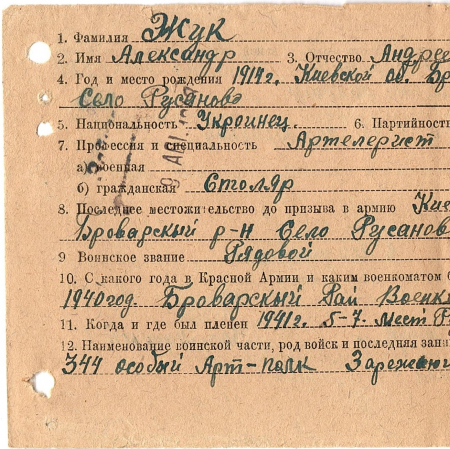 1. Фамилия Жук
2. Имя Александр 3. Отчество Андрее
4. Год и место рождения 1914г. Киевской об. Бр
Село Русанов
5. Национальность Украинец. 6. Партийность
7. Профессия и специальность Артелерист
а) военная
б) гражданская Столяр
8. Последнее местожительство до призыва в армию Кие
Броварскый р-н Село Русанов
9 Воинское звание Рядовой
10. С какого года в Красной Армии и каким военкоматом
1940год. Броварскый Рай Военк
11. Когда и где был пленен 1941г. 5-7. мест
12. Наименование воинской части, род войск и последняя зан
344 особый Арт-полк Заряжаю